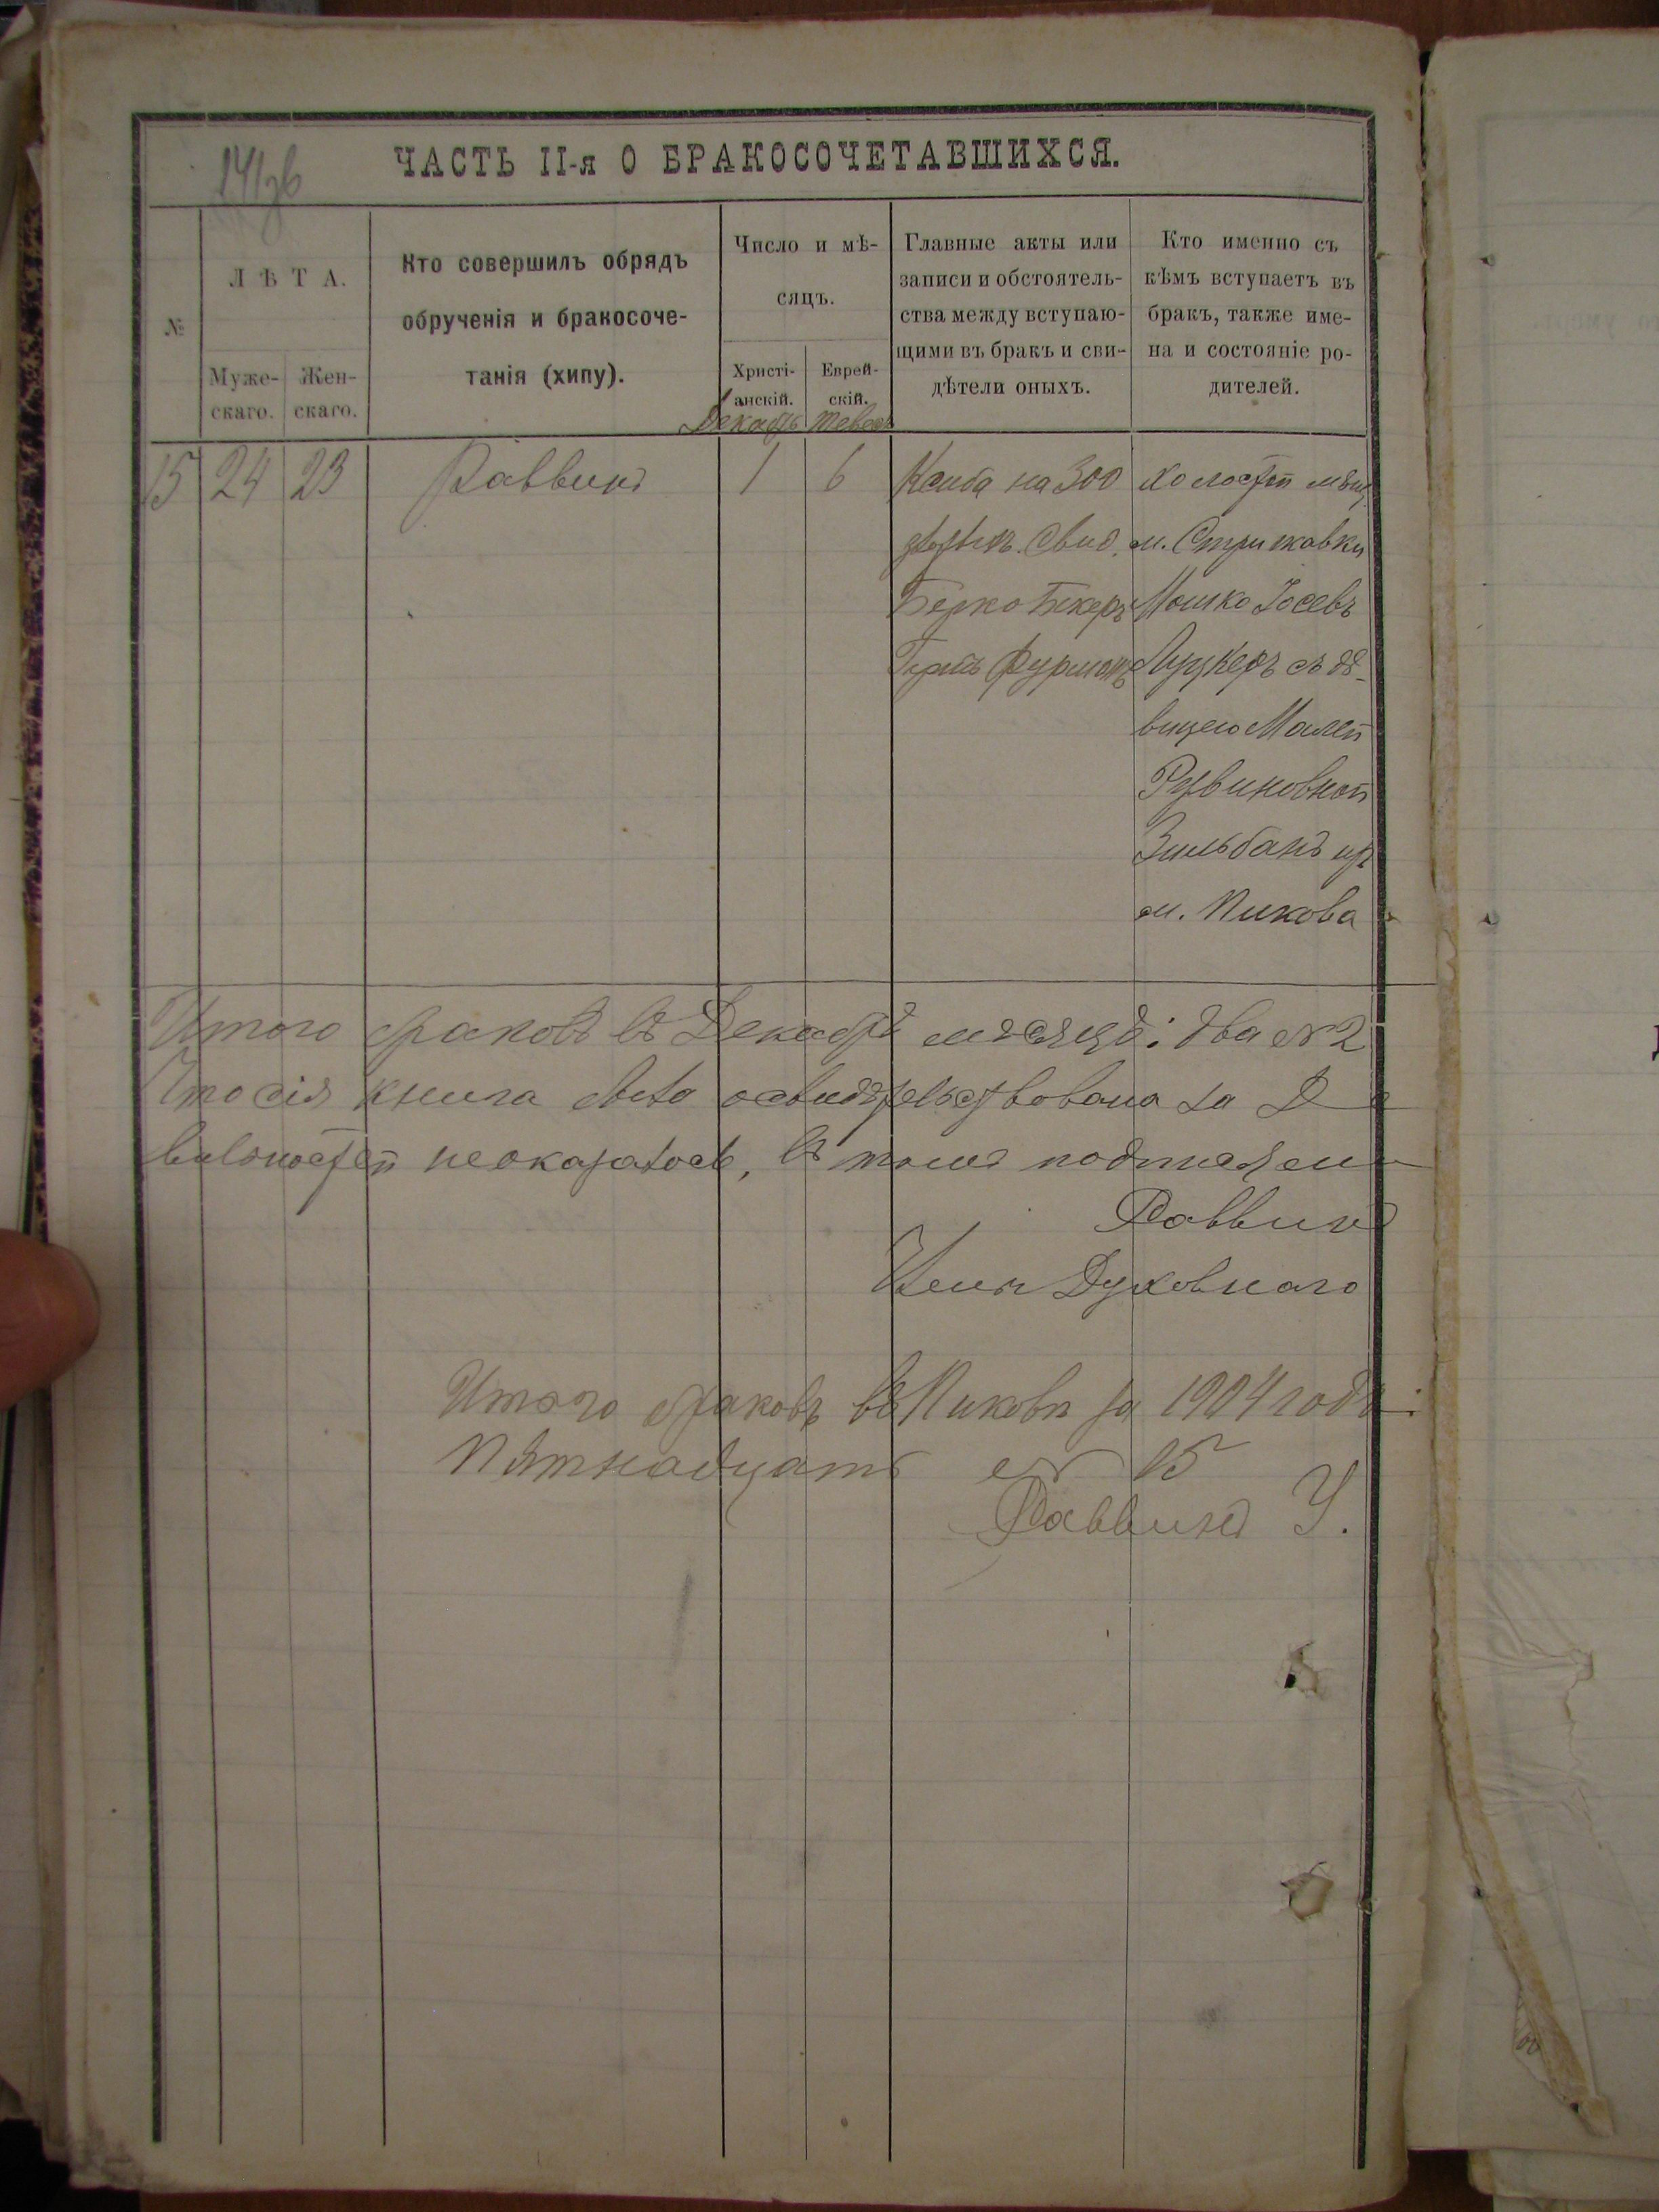 ЧАСТЬ II-я О БРАКОСОЧЕТАВШИХСЯ.
№
ЛѢТА.
Муже-
скаго.
Жен-
скаго.
Кто совершилъ обрядъ
обрученія и бракосоче-
танія (хипу).
Число и мѣ-
сяцъ.
Христі-
анскій.
Еврей-
скій.
Декабр
Тевес
Главные акты или
записи и обстоятель-
ства между вступаю-
щими въ бракъ и сви-
дѣтели оныхъ.
Кто именно съ
кѣмъ вступаетъ въ
бракъ, также име-
на и состояніе ро-
дителей.
15 24 23 Раввинъ 1 6
на 300
Свид.
Берко Бекеръ
Фурманъ
холостой мѣщ.
м. Стрижовки
Мошко Іосевъ
Луцкеръ съ дѣ-
вицею Малей
Рувиновной
Зильбанъ из
м. Пикова
Итого браковъ въ Декабрѣ мѣсяцѣ: два № 2
Что сія книга была освидѣтельствована за Де
неоказалось, въ томъ подписями
Раввинъ
Член Духовнаго
Итого браковъ въ Пиковѣ за 1904 годъ:
Пятнадцать № 15
Раввинъ У.